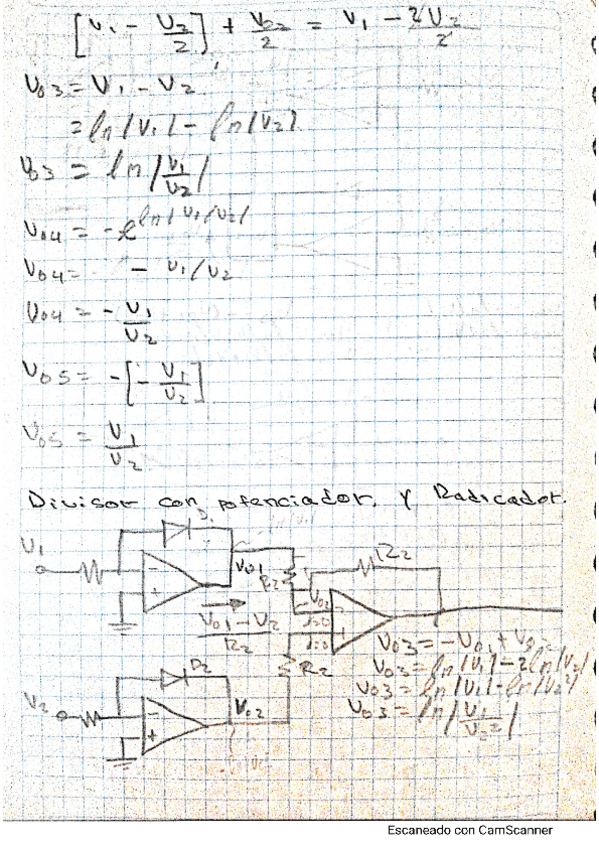 [V1 - V2/2] + V02/2 = V1 - 2V2/2
V03 = V1 - V2
= ln|V1| - ln|V2|
V03 = ln|V1/V2|
V04 = -e^ln|V1/V2|
V04 = - V1/V2
V04 = - V1/V2
V05 = -[- V1/V2]
V05 = V1/V2
Divisor con potenciador, y Radicador.
V1
D1
V01
R2
R2
V02
- +
V01 - V2 / R2
i=0
i=0
V03 = -V01 + V02
V03 = ln|V1| - 2ln|V2|
V03 = ln|V1| - ln|V2²|
V03 = ln|V1/V2²|
V2
D2
R2
V02
- +
Escaneado con CamScanner